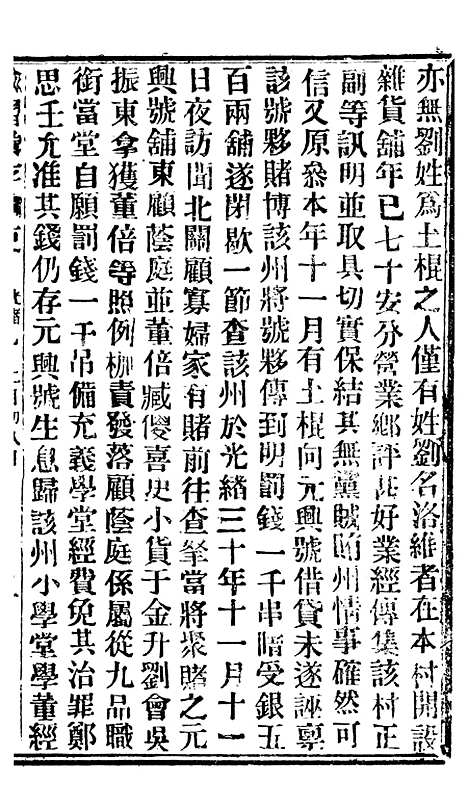 亦無劉姓爲土棍之人僅有姓劉名洛維者在本村開設
雜貨舖年已七十安分營業鄉評甚好業經傳集該村正
副等訊明並取具切實保結其無黨賊陷州情事確然可
信又原叅本年十一月有土棍向元興號借貸未遂誣禀
該號夥賭博該州將號夥傳到明罰錢一千串暗受銀五
百兩舖遂閉歇一節查該州於光緒三十年十一月十一
日夜訪聞北關顧寡婦家有賭前往查拏當將聚賭之元
興號舖東顧蔭庭並董倍臧傻喜史小貨于金升劉會吳
振東拿獲董倍等照例枷責發落顧蔭庭係屬從九品職
銜當堂自願罰錢一千吊備充義學堂經費免其治罪鄭
思壬允准其錢仍存元興號生息歸該州小學堂學董經